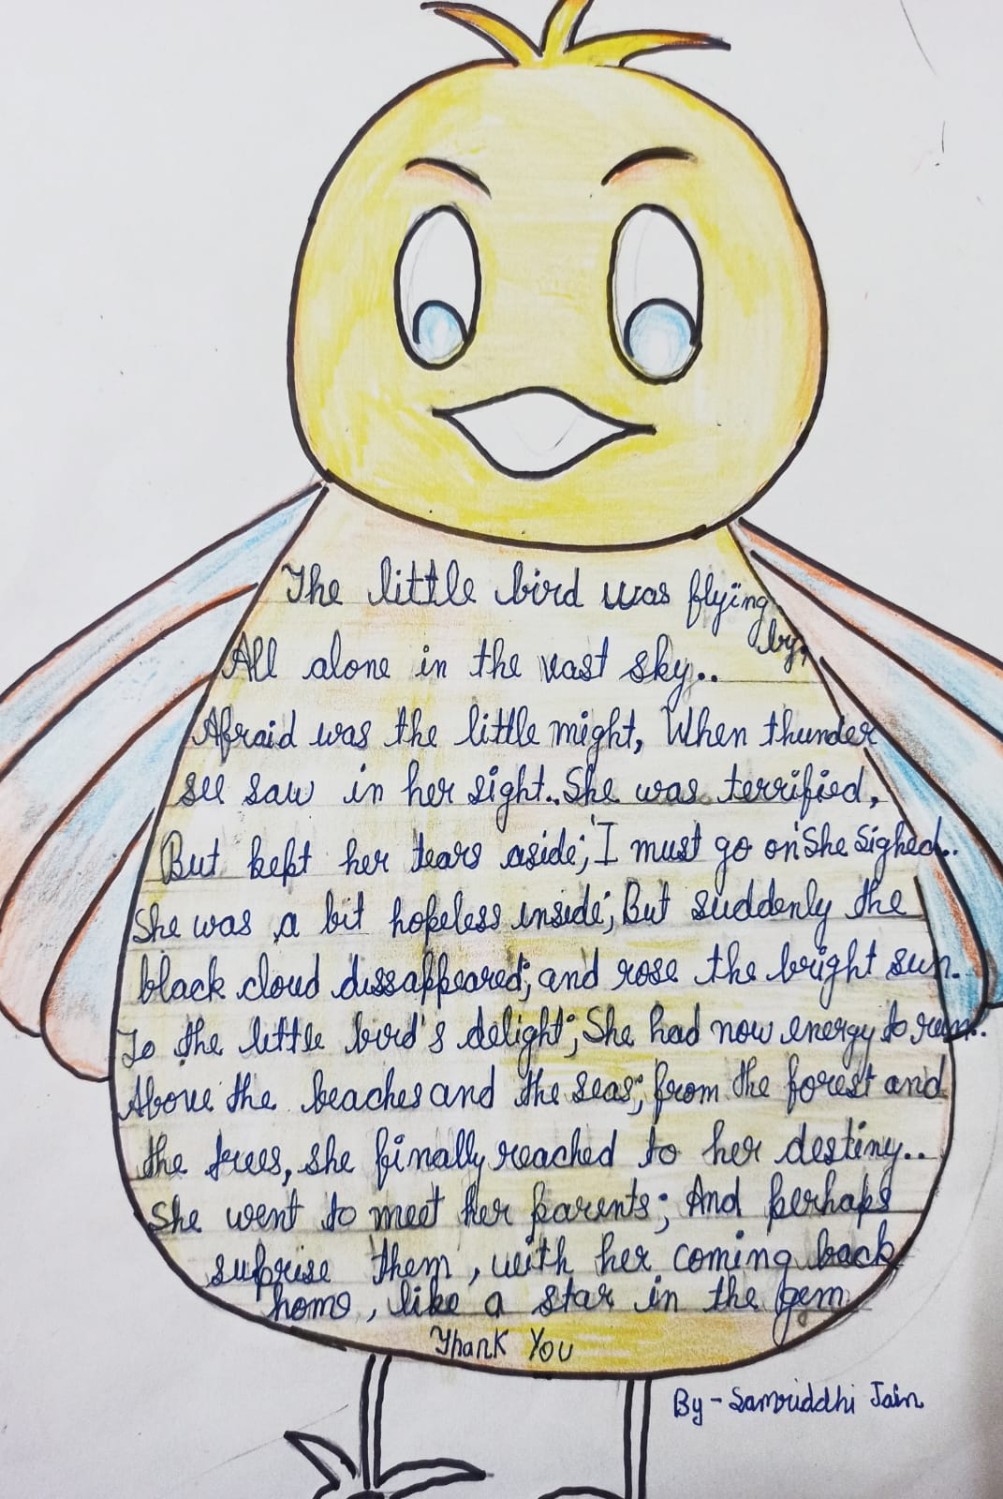 The little bird was flying
by,
All alone in the vast sky..
Afraid was the little might, When thunder
see saw in her sight.. She was terrified,
But kept her tears aside; 'I must go on' She Sighed..
She was a bit hopeless inside; But suddenly the
black cloud dissappeared; and rose the bright sun.
To the little bird's delight; She had now energy to run..
Above the beaches and the seas; from the forest and
the trees, she finally reached to her destiny..
She went to meet her parents; And perhaps
surprise them, with her coming back
home, like a star in the gem
Thank You
By - Samriddhi Jain